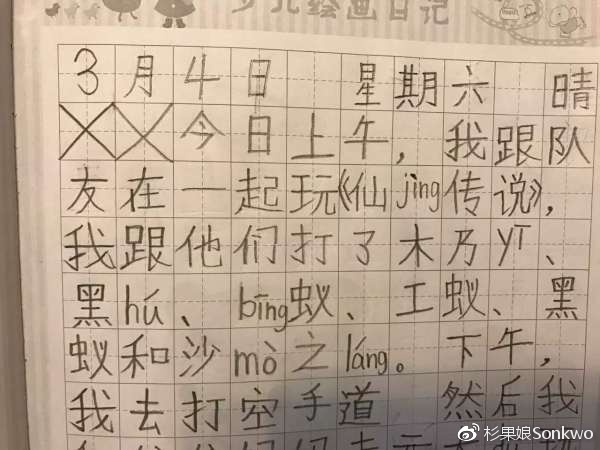 少儿绘画日记
3月4日 星期六 晴
今日上午，我跟队
友在一起玩《仙jìng传说》，
我跟他们打了木乃yī、
黑hú、bīng蚁、工蚁、黑
蚁和沙mò之láng。下午，
我去打空手道 然后我
杉果娘Sonkwo